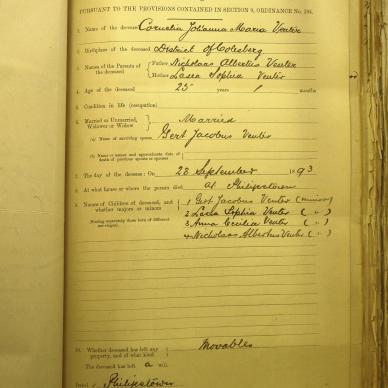 PURSUANT TO THE PROVISIONS CONTAINED IN SECTION 9, ORDINANCE No. 104.
1. Name of the deceased Cornelia Johanna Maria Venter
2. Birthplace of the deceased District of Colesberg
3. Names of the Parents of the deceased { Father Nicholaas Albertus Venter
Mother Lassa Sophia Venter
4. Age of the deceased 25 years / months
5. Condition in life (occupation)
6. Married or Unmarried, Widower or Widow } Married
(a) Name of surviving spouse Gert Jacobus Venter
(b) Name or names and approximate date of death of previous spouse or spouses
7. The day of the decease: On 23 September 1893
8. At what house or where the person died At Philipstown
9. Names of Children of deceased, and whether majors or minors
1 Gert Jacobus Venter (minor)
2 Lassa Sophia Venter ( " )
3 Anna Cecilia Venter ( " )
4 Nicholaas Albertus Venter ( " )
10. Whether deceased has left any property, and of what kind } Movables
The deceased has left a will
Dated at Philipstown